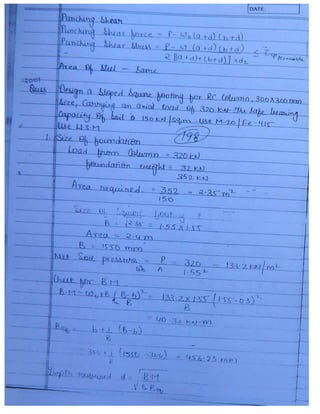 DATE:
Punching Shear
Punching Shear force = P - w₀ (a+d) (b+d)
Punching Shear Stress = P - w₀ (a+d) (b+d) ≤ τ
2 [(a+d)+(b+d)] × d₂
Area of Steel - Same
Design a Sloped Square footing for RC Column, 300×300mm
Size, Carrying an axial load of 320 KN. The Safe bearing
Capacity of Soil is 150 KN/Sqm. Use M-20/Fe-415
Use W.S.M
198
1. Size of foundation
Load from Column = 320 KN
foundation weight = 32 KN
352 KN
Area required = 352 = 2.35 m²
150
Size of Square footing
B = √2.35 = 1.55 × 1.55
Area = 2.4 m
B = 1550 mm
Net Soil pressure = P = 320 = 133.2 KN/m²
w₀ A 1.55²
Check for B.M
B.M = w₀ × B (B-b)² = 133.2×1.55 (1.55-0.3)²
8 8
= 40.32 KN-m
Beq = b + 1/8 (B-b)
300 + 1/8 (1550 - 300) = 456.25 mm
Depth required d = √BM